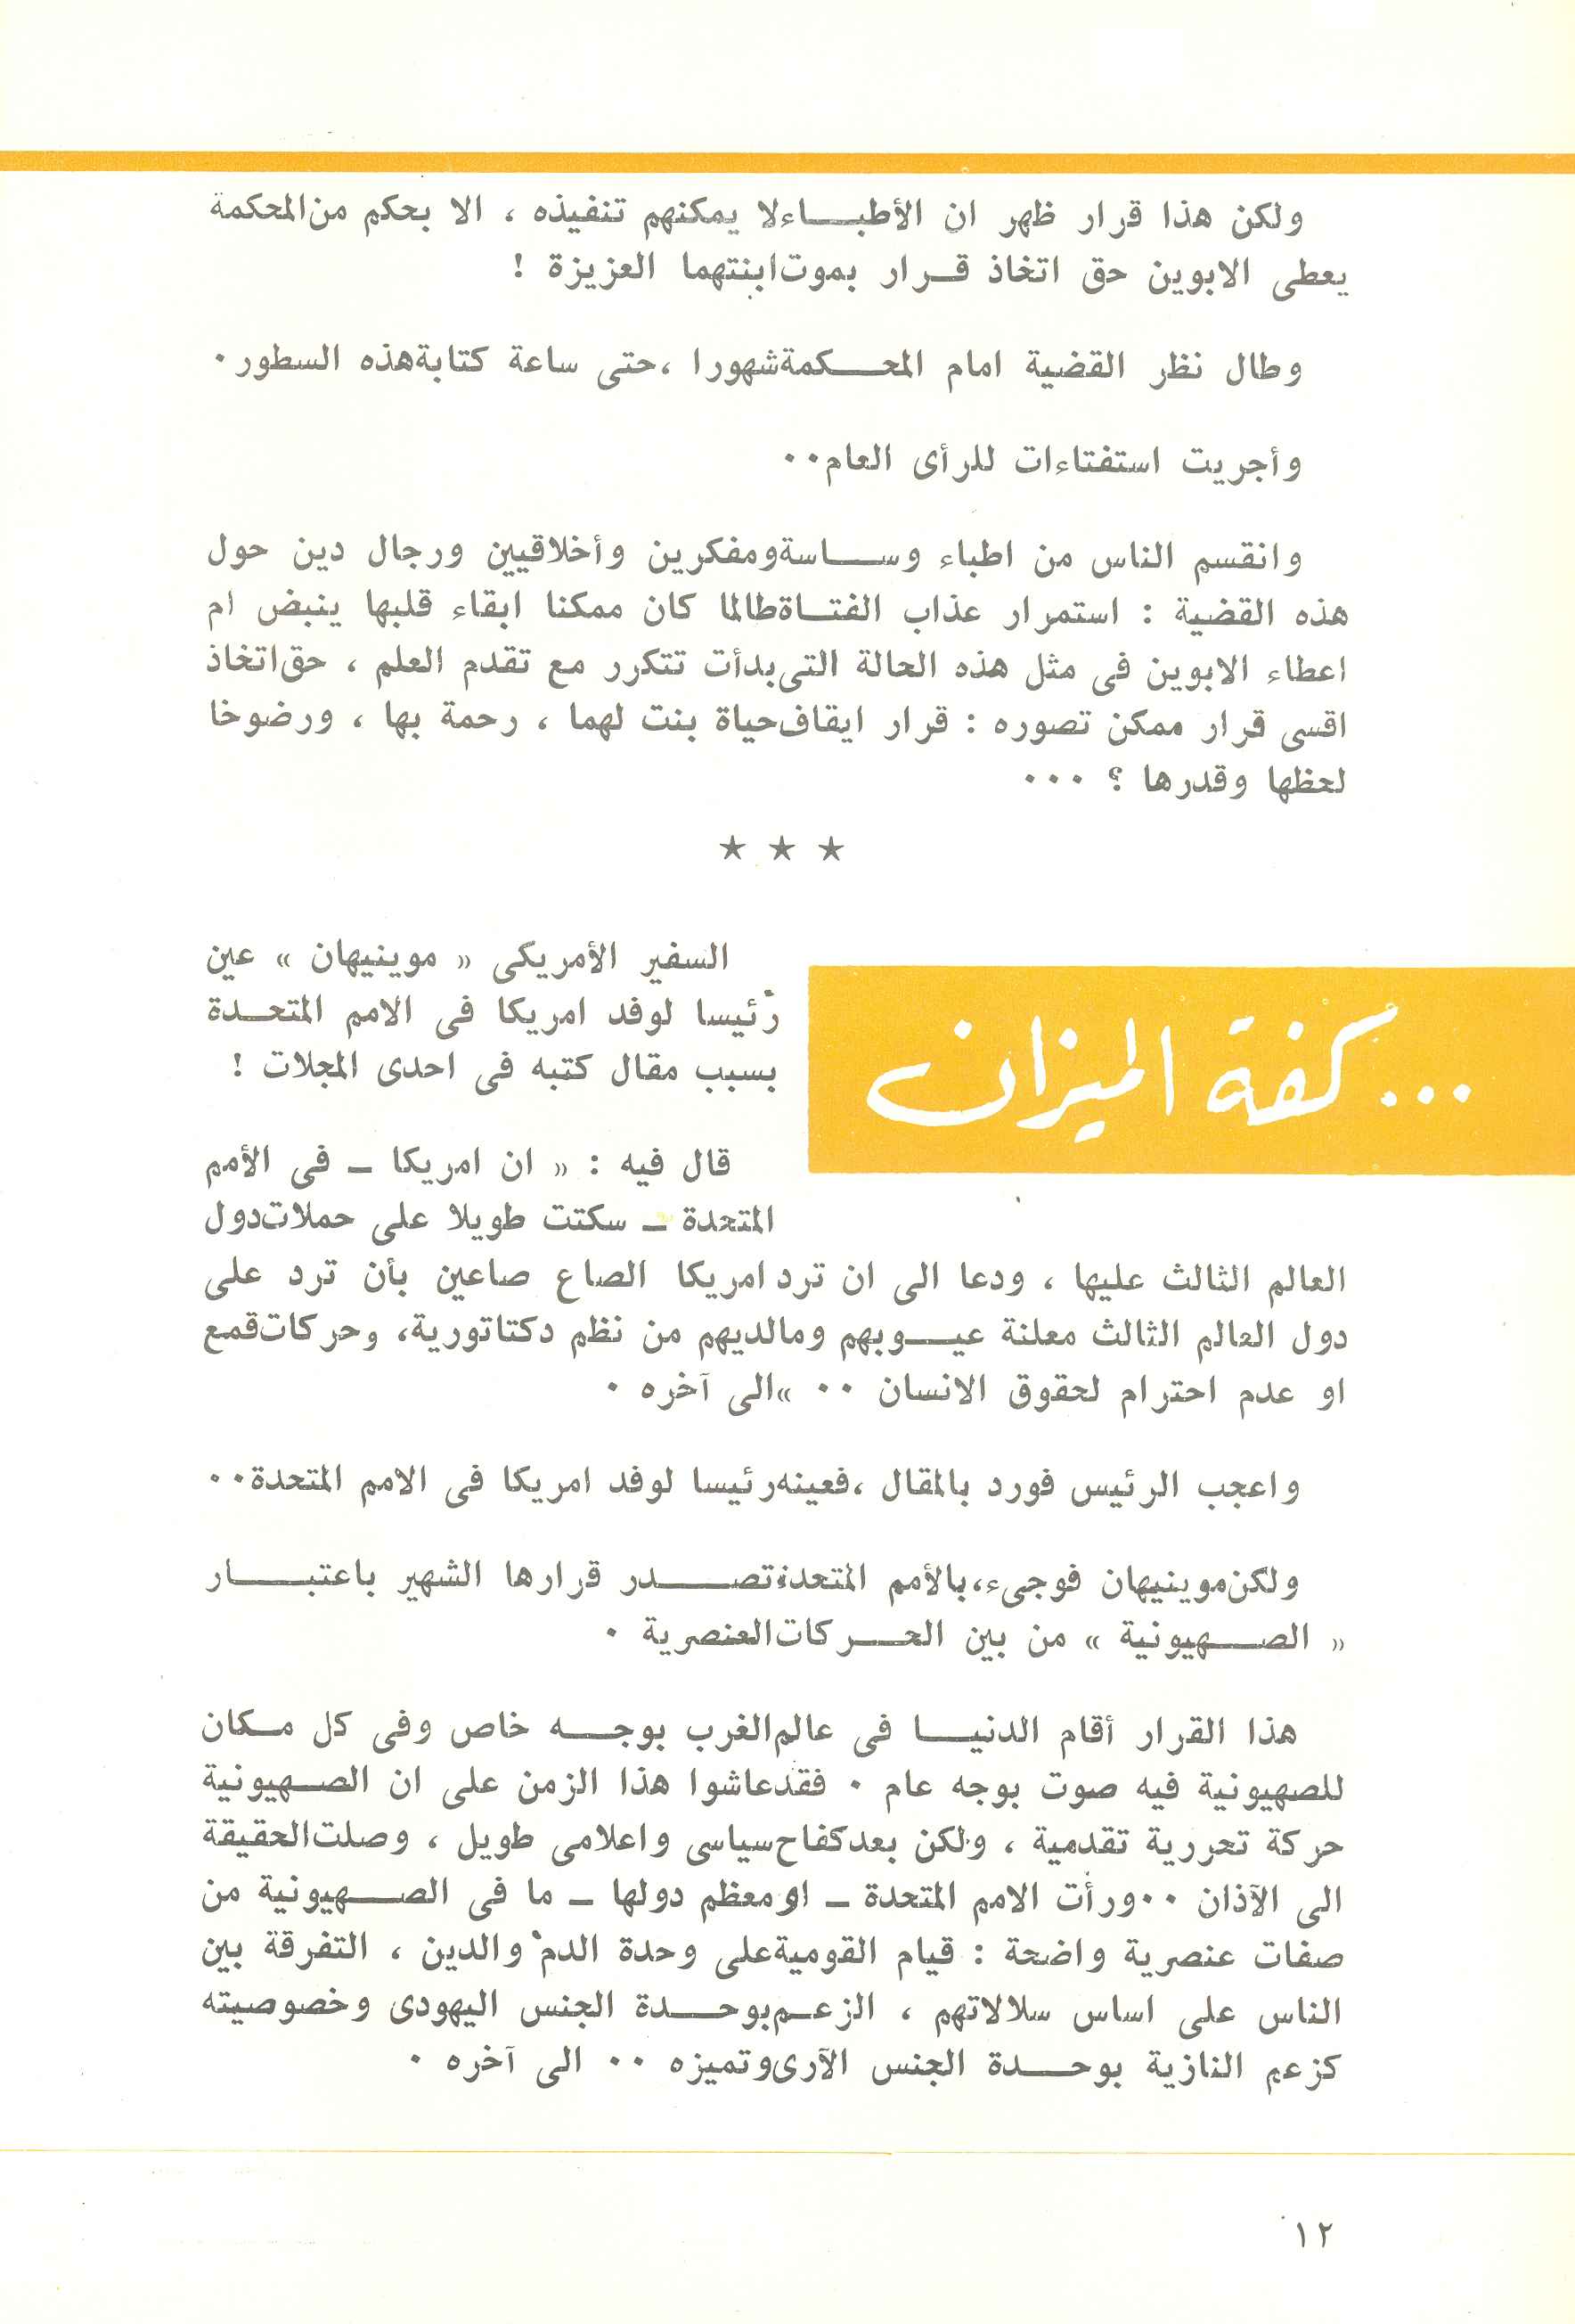 ولكن هذا قرار ظهر ان الأطباء لا يمكنهم تنفيذه ، الا بحكم من المحكمة
يعطى الابوين حق اتخاذ قرار بموت ابنتهما العزيزة !
وطال نظر القضية امام المحكمة شهورا ، حتى ساعة كتابة هذه السطور ٠
وأجريت استفتاءات للرأى العام ٠٠
وانقسم الناس من اطباء وساسة ومفكرين وأخلاقيين ورجال دين حول
هذه القضية : استمرار عذاب الفتاة طالما كان ممكنا ابقاء قلبها ينبض ام
اعطاء الابوين فى مثل هذه الحالة التى بدأت تتكرر مع تقدم العلم ، حق اتخاذ
اقسى قرار ممكن تصوره : قرار ايقاف حياة بنت لهما ، رحمة بها ، ورضوخا
لحظها وقدرها ؟ ٠٠٠
★ ★ ★
٠٠٠ كفة الميزان
السفير الأمريكى « موينيهان » عين
رئيسا لوفد امريكا فى الامم المتحدة
بسبب مقال كتبه فى احدى المجلات !
قال فيه : « ان امريكا ــ فى الأمم
المتحدة ــ سكتت طويلا على حملات دول
العالم الثالث عليها ، ودعا الى ان ترد امريكا الصاع صاعين بأن ترد على
دول العالم الثالث معلنة عيوبهم ومالديهم من نظم دكتاتورية، وحركات قمع
او عدم احترام لحقوق الانسان ٠٠ » الى آخره ٠
واعجب الرئيس فورد بالمقال ، فعينه رئيسا لوفد امريكا فى الامم المتحدة ٠٠
ولكن موينيهان فوجىء، بالأمم المتحدة تصدر قرارها الشهير باعتبار
« الصهيونية » من بين الحركات العنصرية ٠
هذا القرار أقام الدنيا فى عالم الغرب بوجه خاص وفى كل مكان
للصهيونية فيه صوت بوجه عام ٠ فقد عاشوا هذا الزمن على ان الصهيونية
حركة تحررية تقدمية ، ولكن بعد كفاح سياسى واعلامى طويل ، وصلت الحقيقة
الى الآذان ٠٠ ورأت الامم المتحدة ــ او معظم دولها ــ ما فى الصهيونية من
صفات عنصرية واضحة : قيام القومية على وحدة الدم والدين ، التفرقة بين
الناس على اساس سلالاتهم ، الزعم بوحدة الجنس اليهودى وخصوصيته
كزعم النازية بوحدة الجنس الآرى وتميزه ٠٠ الى آخره ٠
١٢